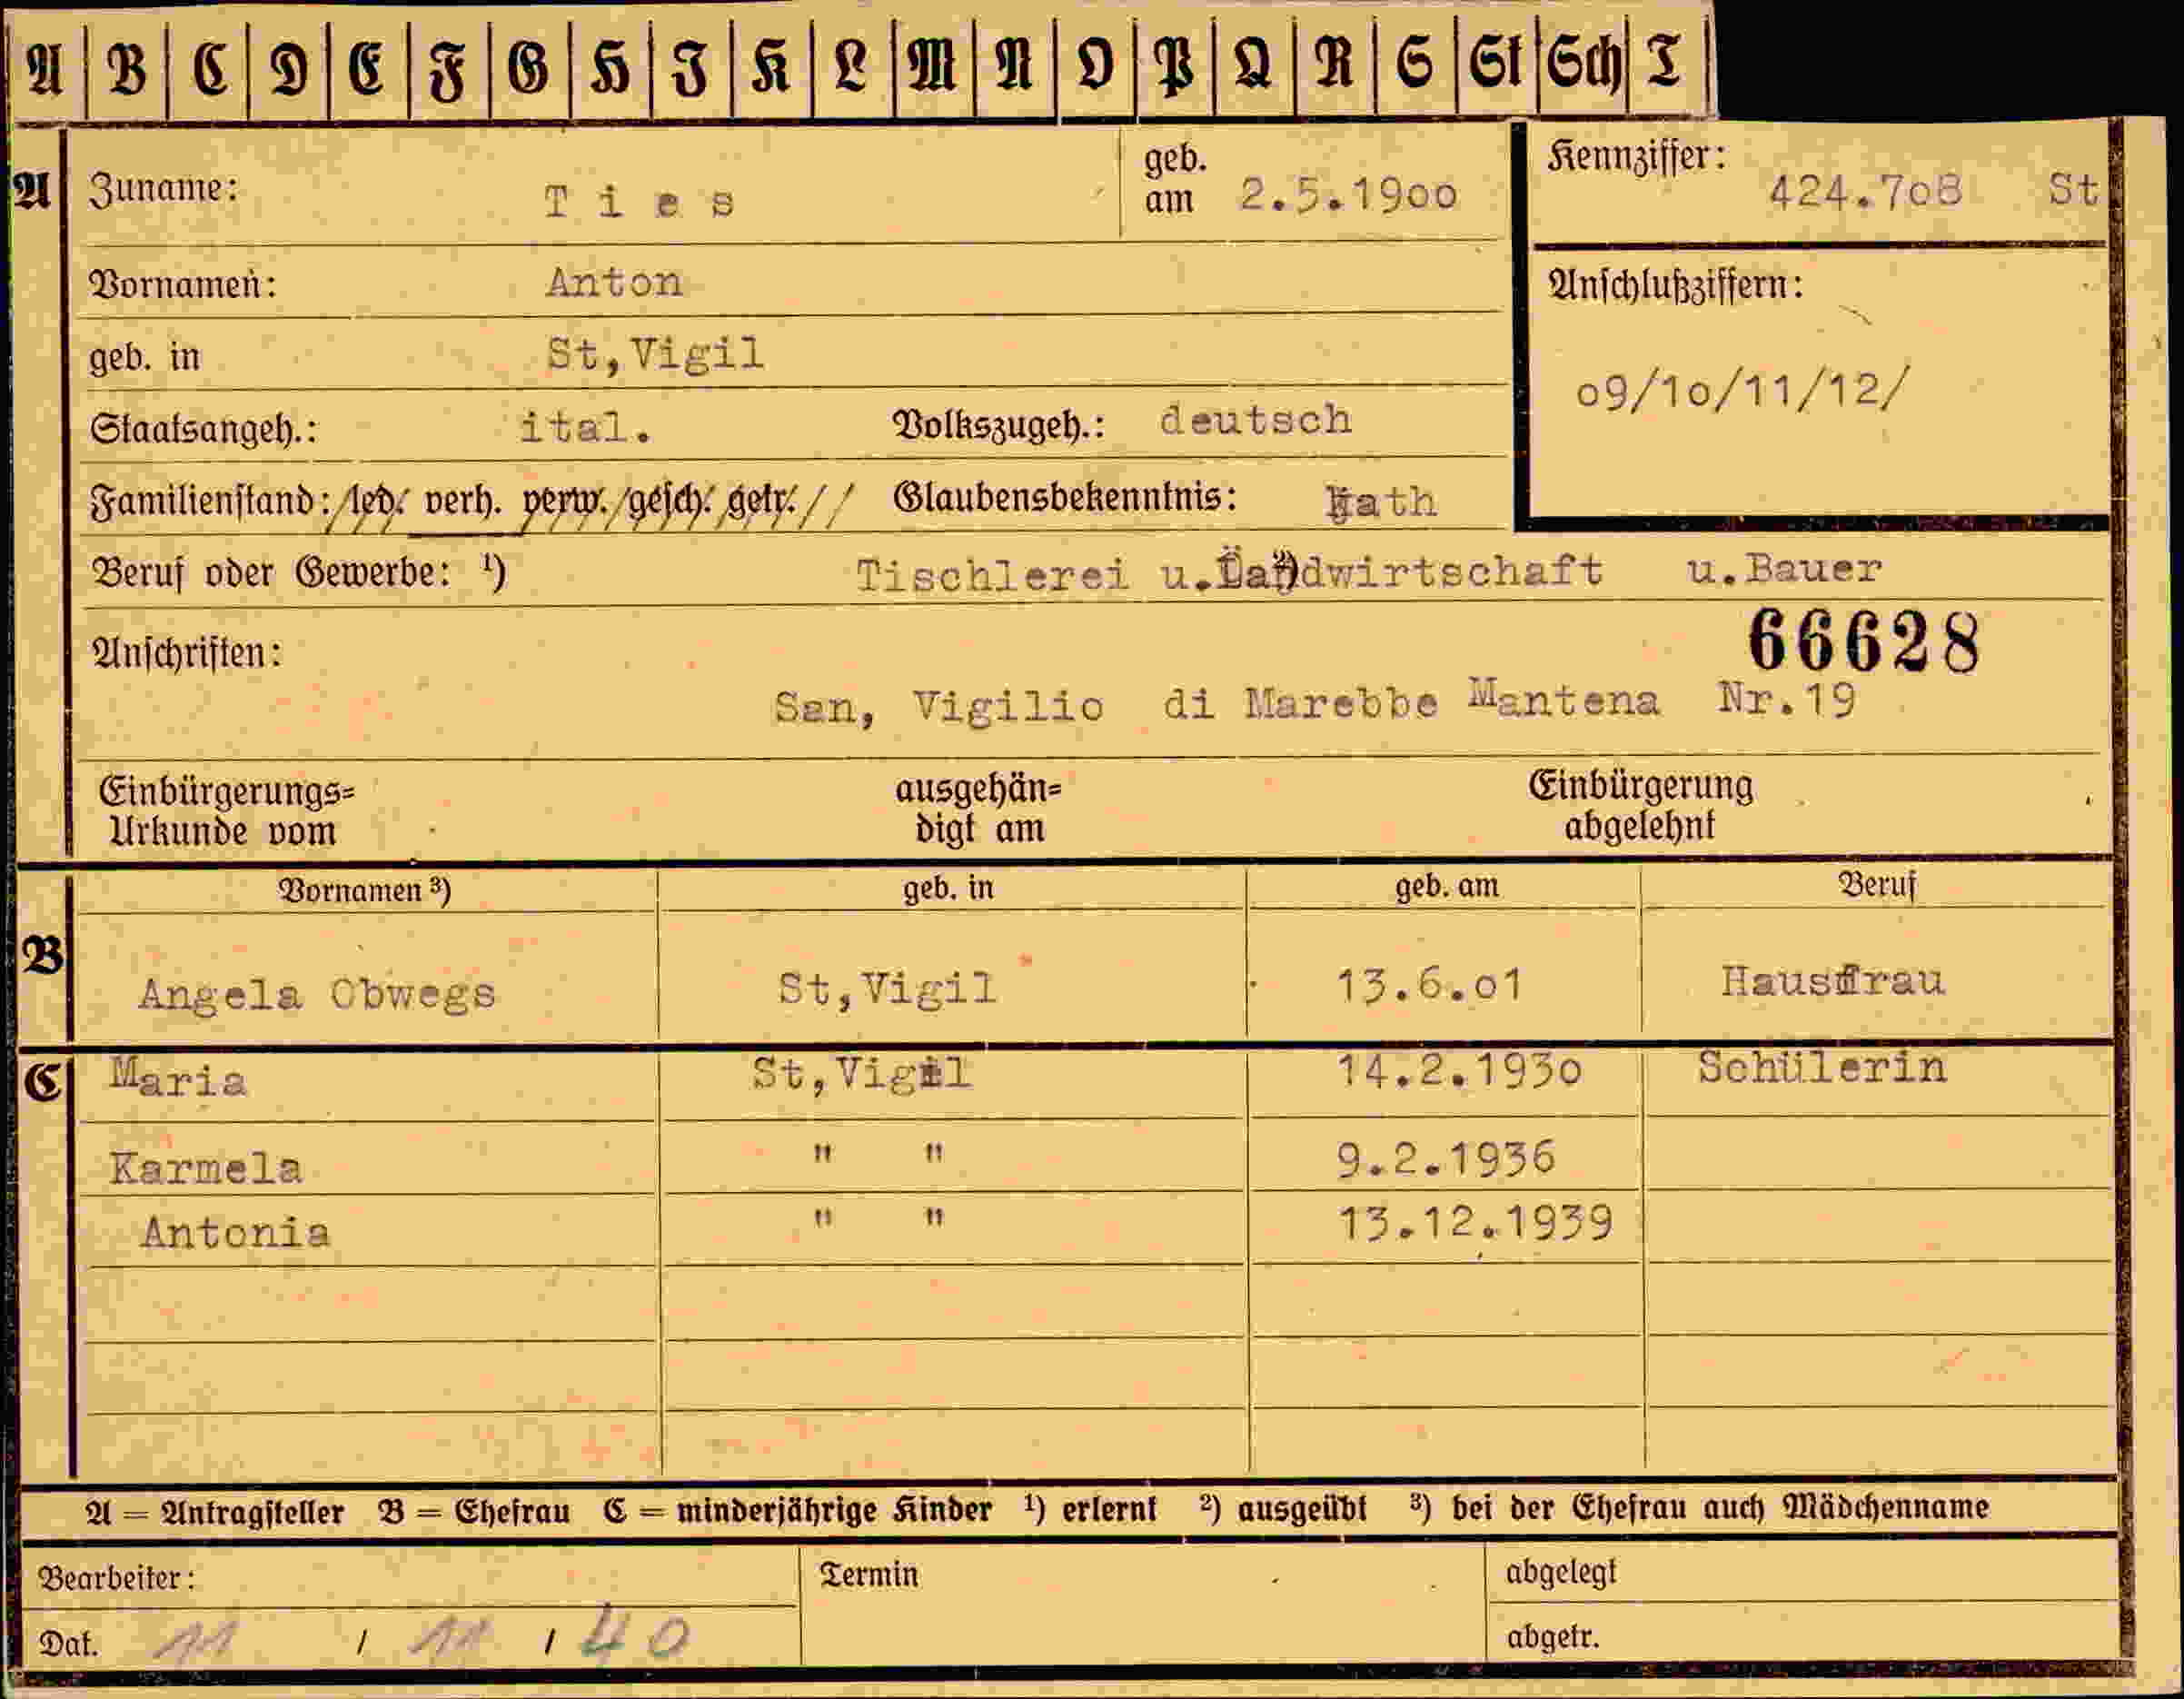 A B C D E F G H I K L M N O P Q R S St Sch T
A Zuname: Ties geb. am 2.5.1900 Kennziffer: 424.708 St
Vornamen: Anton Anschlußziffern:
geb. in St,Vigil 09/10/11/12/
Staatsangeh.: ital. Volkszugeh.: deutsch
Familienstand: led. verh. verw. gesch. getr. Glaubensbekenntnis: kath
Beruf oder Gewerbe: ¹) Tischlerei u.Landwirtschaft ²) u.Bauer
Anschriften: 66628
San, Vigilio di Marebbe Mantena Nr.19
Einbürgerungs= ausgehän= Einbürgerung
Urkunde vom digt am abgelehnt
Vornamen ³) geb. in geb. am Beruf
B Angela Obwegs St,Vigil 13.6.01 Hausfrau
C Maria St,Vigil 14.2.1930 Schülerin
Karmela " " 9.2.1936
Antonia " " 13.12.1939
A = Antragsteller B = Ehefrau C = minderjährige Kinder ¹) erlernt ²) ausgeübt ³) bei der Ehefrau auch Mädchenname
Bearbeiter: Termin abgelegt
Dat. 11 / 11 / 40 abgetr.